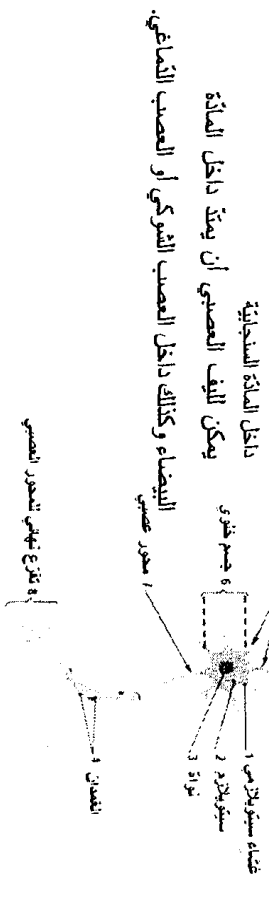 داخل المادّة السنجابيّة
يمكن لليف العصبي أن يمتدّ داخل المادّة
البيضاء وكذلك داخل العصب الشوكي أو العصب الدّماغي.
غشاء سيتوبلازمي 1
سيتوبلازم 2
نواة 3
4 الغمدان
6 جسم خلوي
7 محور عصبي
8 تفرّع نهائي للمحور العصبي